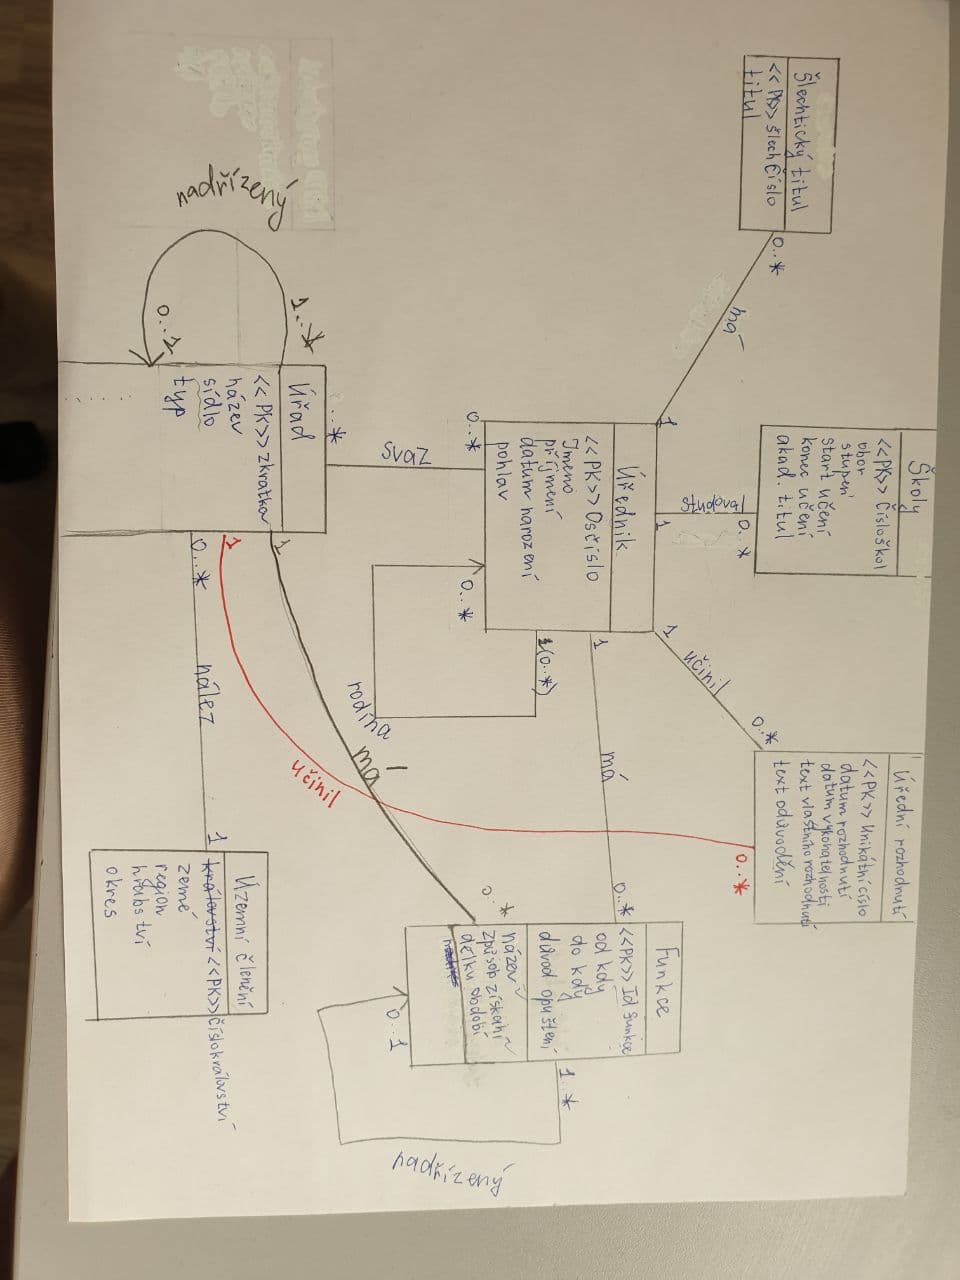 Školy
<<PK>> Čísloškol
obor
stupeň
start učení
konec učení
akad. titul
0..*
Úřední rozhodnutí
<<PK>> Unikátní císlo
datum rozhodnutí
datum vykonatelnosti
text vlastního rozhodnutí
text odůvodění
0..*
0..*
Šlechtický titul
<<PK>> šlech Číslo
titul
0..*
má
1
studoval
1
učinil
1
Úředník
<<PK>> Osčíslo
Jmeno
příjmení
datum narození
pohlav
1
má
0..*
1(0..*)
0..*
rodina
0..*
Funkce
<<PK>> Id funkce
od kdy
do kdy
důvod opuštění
název
způsob získání
délku období
1..*
nadřízený
0..1
0..*
má
1
svaz
..*
Úřad
<<PK>> zkratka
název
sídlo
typ
1..*
nadřízený
0..1
učinil
1
0..*
nález
1
Územní členění
království <<PK>> Číslokrálovství
země
region
hrabství
okres